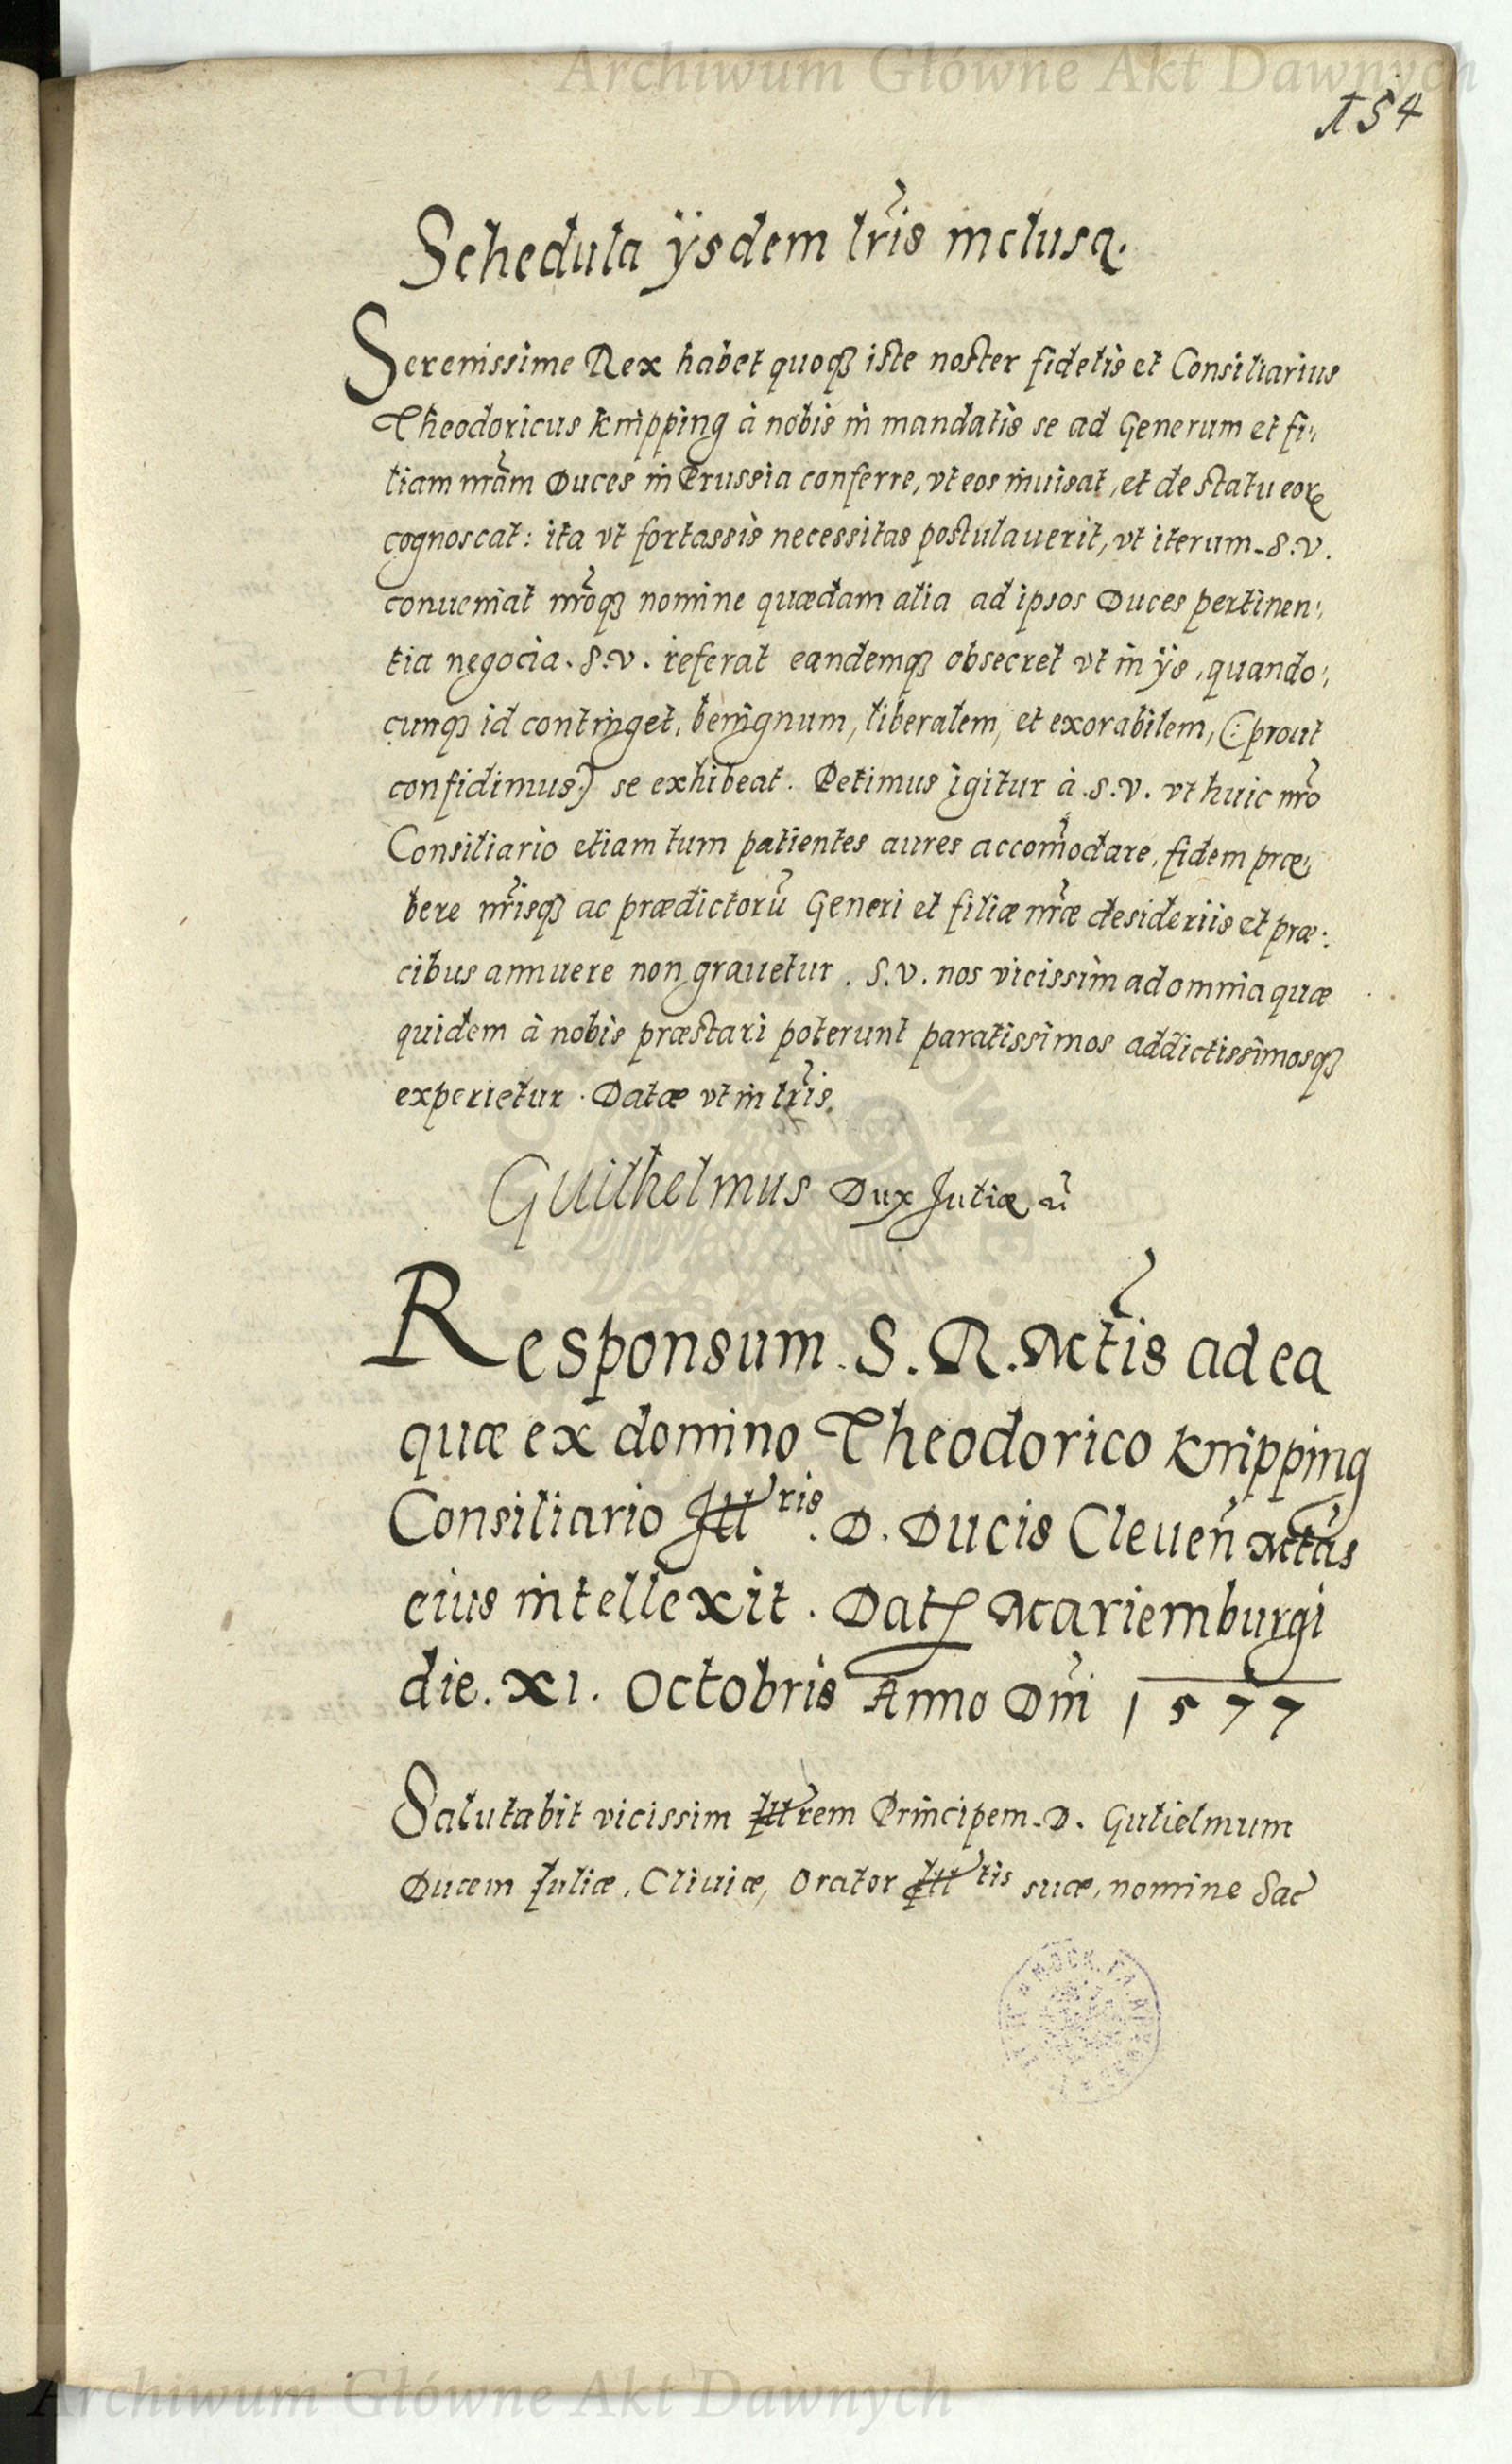 Archiwum Główne Akt Dawnych
154
Schedula ijsdem lris inclusa.
Serenissime Rex habet quoq iste noster fidelis et Consiliarius
Theodoricus Knipping à nobis in mandatis se ad Generum et fi,
liam nram Duces in Prussia conferre, vt eos inuisat, et de statu eor
cognoscat: ita vt fortassis necessitas postulauerit, vt iterum S.V.
conueniat nroq nomine quædam alia ad ipsos Duces pertinen,
tia negocia. S.V. referat eandemq obsecret vt in ijs, quando,
cunq id continget, benignum, liberalem, et exorabilem, (: prout
confidimus:) se exhibeat. Petimus igitur à S.V. vt huic nro
Consiliario etiam tum patientes aures accomodare, fidem præ,
bere nrisq ac prædictorū Generi et filiæ nræ desideriis et præ:
cibus annuere non grauetur. S.V. nos vicissim ad omnia quæ
quidem à nobis præstari poterunt paratissimos addictissimosq
experietur. Datæ vt in lris.
Guilhelmus Dux Juliæ
Responsum S.R.Mtis ad ea
quæ ex domino Theodorico Knipping
Consiliario Illris. D. Ducis Cleuen Mtas
eius intellexit. Dat Mariemburgi
die. XI. Octobris Anno Dni 1577
Salutabit vicissim Illrem Principem D. Gulielmum
Ducem Juliæ, Cliuiæ, Orator Illtis suæ, nomine Sac
Archiwum Główne Akt Dawnych